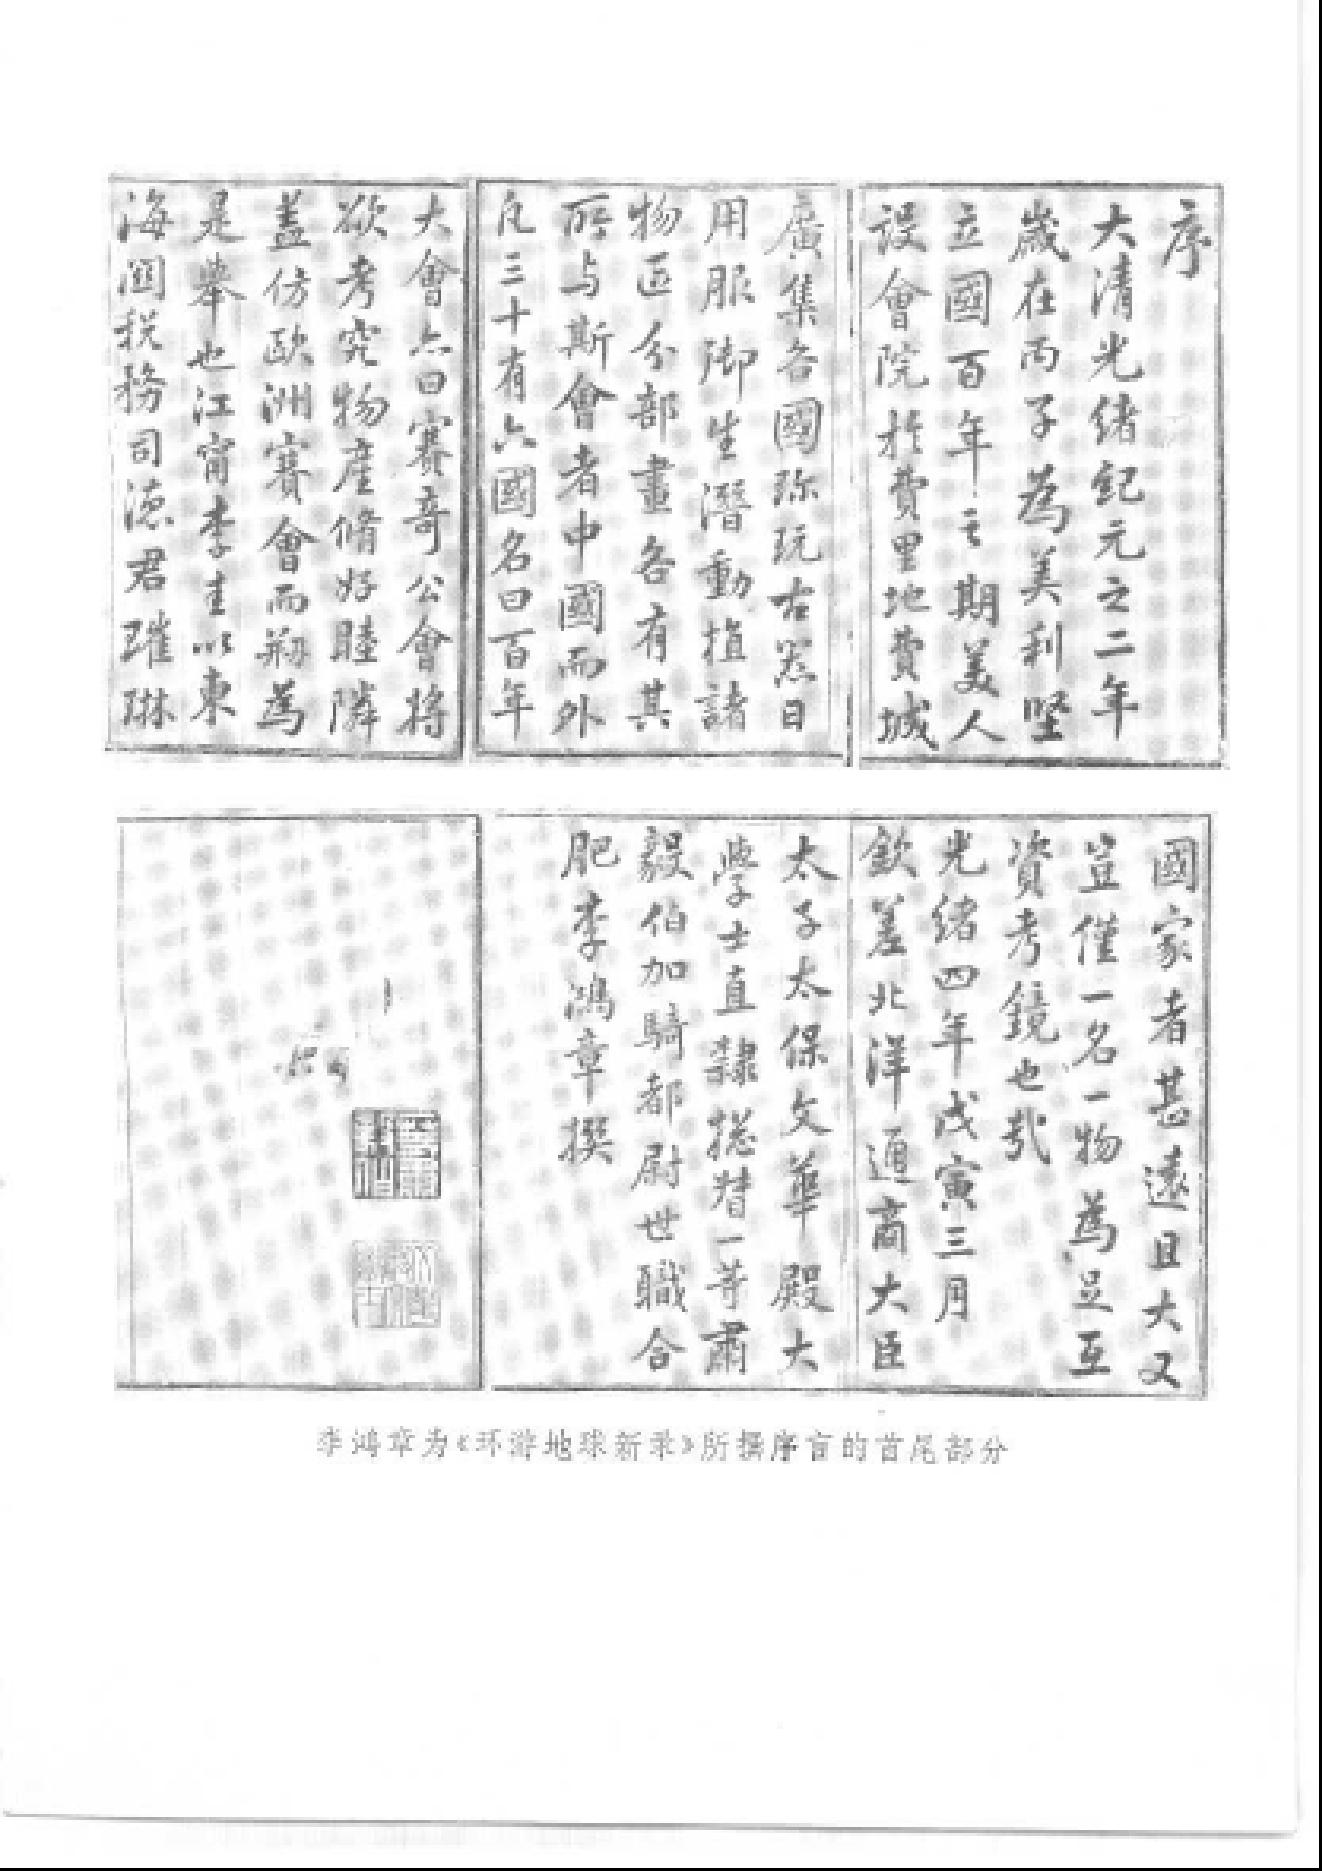 序
大清光绪紀元之二年
歲在丙子為美利堅
立國百年之期美人
設會院於費里地費城
廣集各國珎玩古器日
用服御生潛動植諸
物區分部畫各有其
所与斯會者中國而外
凡三十有六國名曰百年
大會亦曰賽奇公會將
欲考究物產脩好睦隣
蓋仿歐洲賽會而刱為
是舉也江甯李圭以東
海関税務司德君璀琳
國家者甚遠且大又
豈僅一名一物為足互
資考鏡也哉
光緒四年戊寅三月
欽差北洋通商大臣
太子太保文華殿大
學士直隸總督一等肅
毅伯加騎都尉世職合
肥李鴻章撰
李鸿章为《环游地球新录》所撰序言的首尾部分